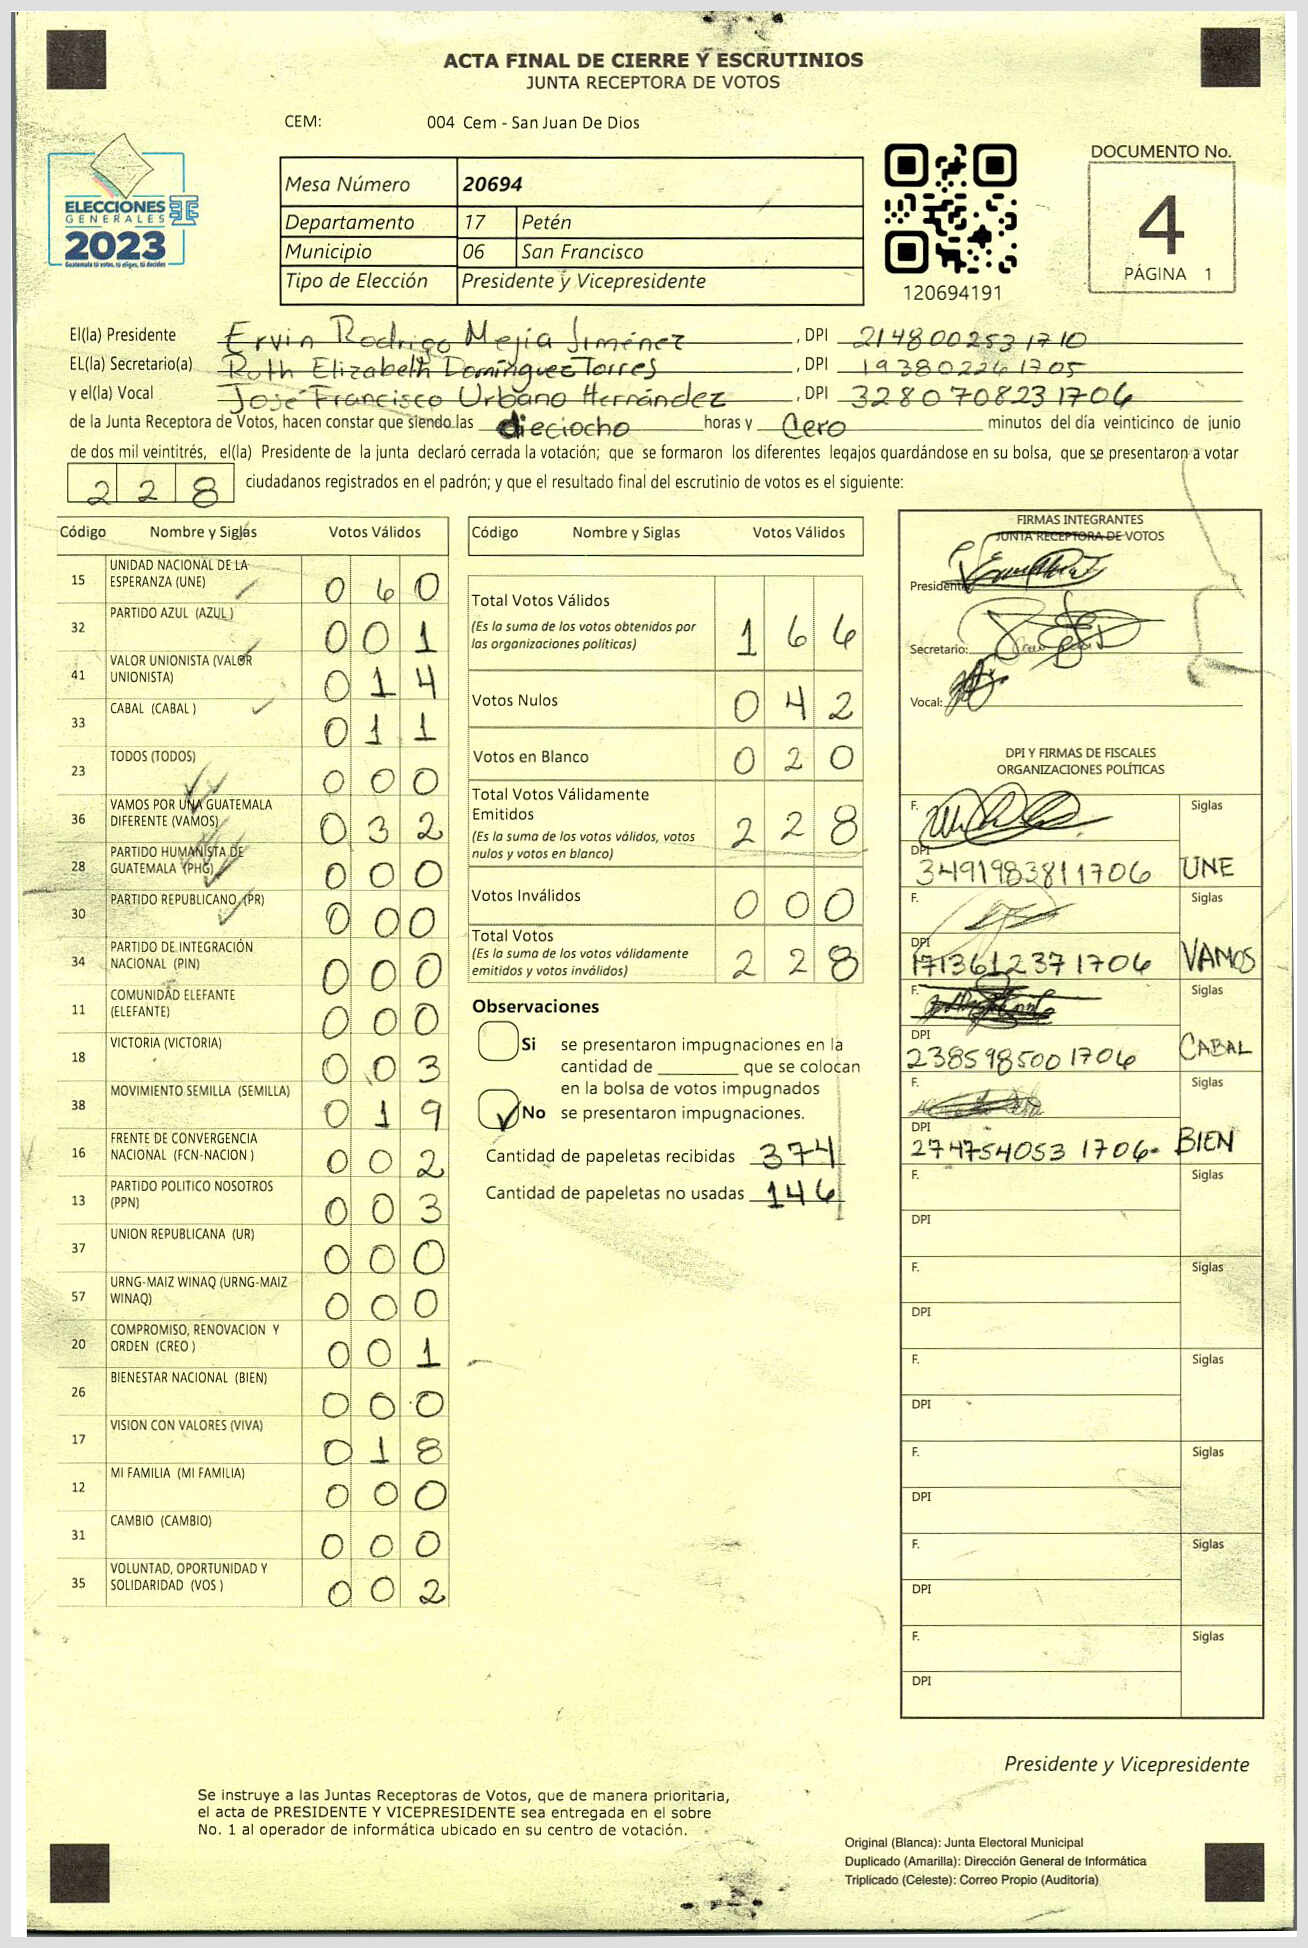 ACTA FINAL DE CIERRE Y ESCRUTINIOS
JUNTA RECEPTORA DE VOTOS
CEM: 004 Cem - San Juan De Dios
ELECCIONES
GENERALES
2023
Guatemala tú votas, tú eliges, tú decides
Mesa Número 20694
Departamento 17 Petén
Municipio 06 San Francisco
Tipo de Elección Presidente y Vicepresidente
120694191
DOCUMENTO No.
4
PÁGINA 1
El(la) Presidente Ervin Rodrigo Mejía Jiménez , DPI 2148002531710
EL(la) Secretario(a) Ruth Elizabeth Domínguez Torres , DPI 193802261705
y el(la) Vocal José Francisco Urbano Hernández , DPI 3280708231706
de la Junta Receptora de Votos, hacen constar que siendo las dieciocho horas y Cero minutos del día veinticinco de junio
de dos mil veintitrés, el(la) Presidente de la junta declaró cerrada la votación; que se formaron los diferentes legajos guardándose en su bolsa, que se presentaron a votar
228 ciudadanos registrados en el padrón; y que el resultado final del escrutinio de votos es el siguiente:
Código Nombre y Siglas Votos Válidos
15 UNIDAD NACIONAL DE LA ESPERANZA (UNE) 0 6 0
32 PARTIDO AZUL (AZUL ) 0 0 1
41 VALOR UNIONISTA (VALOR UNIONISTA) 0 1 4
33 CABAL (CABAL ) 0 1 1
23 TODOS (TODOS) 0 0 0
36 VAMOS POR UNA GUATEMALA DIFERENTE (VAMOS) 0 3 2
28 PARTIDO HUMANISTA DE GUATEMALA (PHG) 0 0 0
30 PARTIDO REPUBLICANO (PR) 0 0 0
34 PARTIDO DE INTEGRACIÓN NACIONAL (PIN) 0 0 0
11 COMUNIDAD ELEFANTE (ELEFANTE) 0 0 0
18 VICTORIA (VICTORIA) 0 0 3
38 MOVIMIENTO SEMILLA (SEMILLA) 0 1 9
16 FRENTE DE CONVERGENCIA NACIONAL (FCN-NACION ) 0 0 2
13 PARTIDO POLITICO NOSOTROS (PPN) 0 0 3
37 UNION REPUBLICANA (UR) 0 0 0
57 URNG-MAIZ WINAQ (URNG-MAIZ WINAQ) 0 0 0
20 COMPROMISO, RENOVACION Y ORDEN (CREO ) 0 0 1
26 BIENESTAR NACIONAL (BIEN) 0 0 0
17 VISION CON VALORES (VIVA) 0 1 8
12 MI FAMILIA (MI FAMILIA) 0 0 0
31 CAMBIO (CAMBIO) 0 0 0
35 VOLUNTAD, OPORTUNIDAD Y SOLIDARIDAD (VOS ) 0 0 2
Código Nombre y Siglas Votos Válidos
Total Votos Válidos 1 6 6
(Es la suma de los votos obtenidos por
las organizaciones políticas)
Votos Nulos 0 4 2
Votos en Blanco 0 2 0
Total Votos Válidamente
Emitidos 2 2 8
(Es la suma de los votos válidos, votos
nulos y votos en blanco)
Votos Inválidos 0 0 0
Total Votos 2 2 8
(Es la suma de los votos válidamente
emitidos y votos inválidos)
Observaciones
Si se presentaron impugnaciones en la
cantidad de ________ que se colocan
en la bolsa de votos impugnados
No se presentaron impugnaciones.
Cantidad de papeletas recibidas 374
Cantidad de papeletas no usadas 146
FIRMAS INTEGRANTES
JUNTA RECEPTORA DE VOTOS
Presidente:
Secretario:
Vocal:
DPI Y FIRMAS DE FISCALES
ORGANIZACIONES POLÍTICAS
F. Siglas
DPI 3491983811706 UNE
F. Siglas
DPI 1713612371706 VAMOS
F. Siglas
DPI 2385985001706 CABAL
F. Siglas
DPI 2747540531706 BIEN
F. Siglas
DPI
F. Siglas
DPI
F. Siglas
DPI
F. Siglas
DPI
F. Siglas
DPI
F. Siglas
DPI
Presidente y Vicepresidente
Se instruye a las Juntas Receptoras de Votos, que de manera prioritaria,
el acta de PRESIDENTE Y VICEPRESIDENTE sea entregada en el sobre
No. 1 al operador de informática ubicado en su centro de votación.
Original (Blanca): Junta Electoral Municipal
Duplicado (Amarilla): Dirección General de Informática
Triplicado (Celeste): Correo Propio (Auditoría)